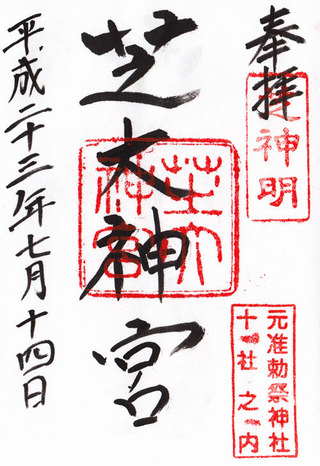 奉拝
神明
元准勅祭神社
十社之内
芝大神宮
芝大神宮
平成二十三年七月十四日